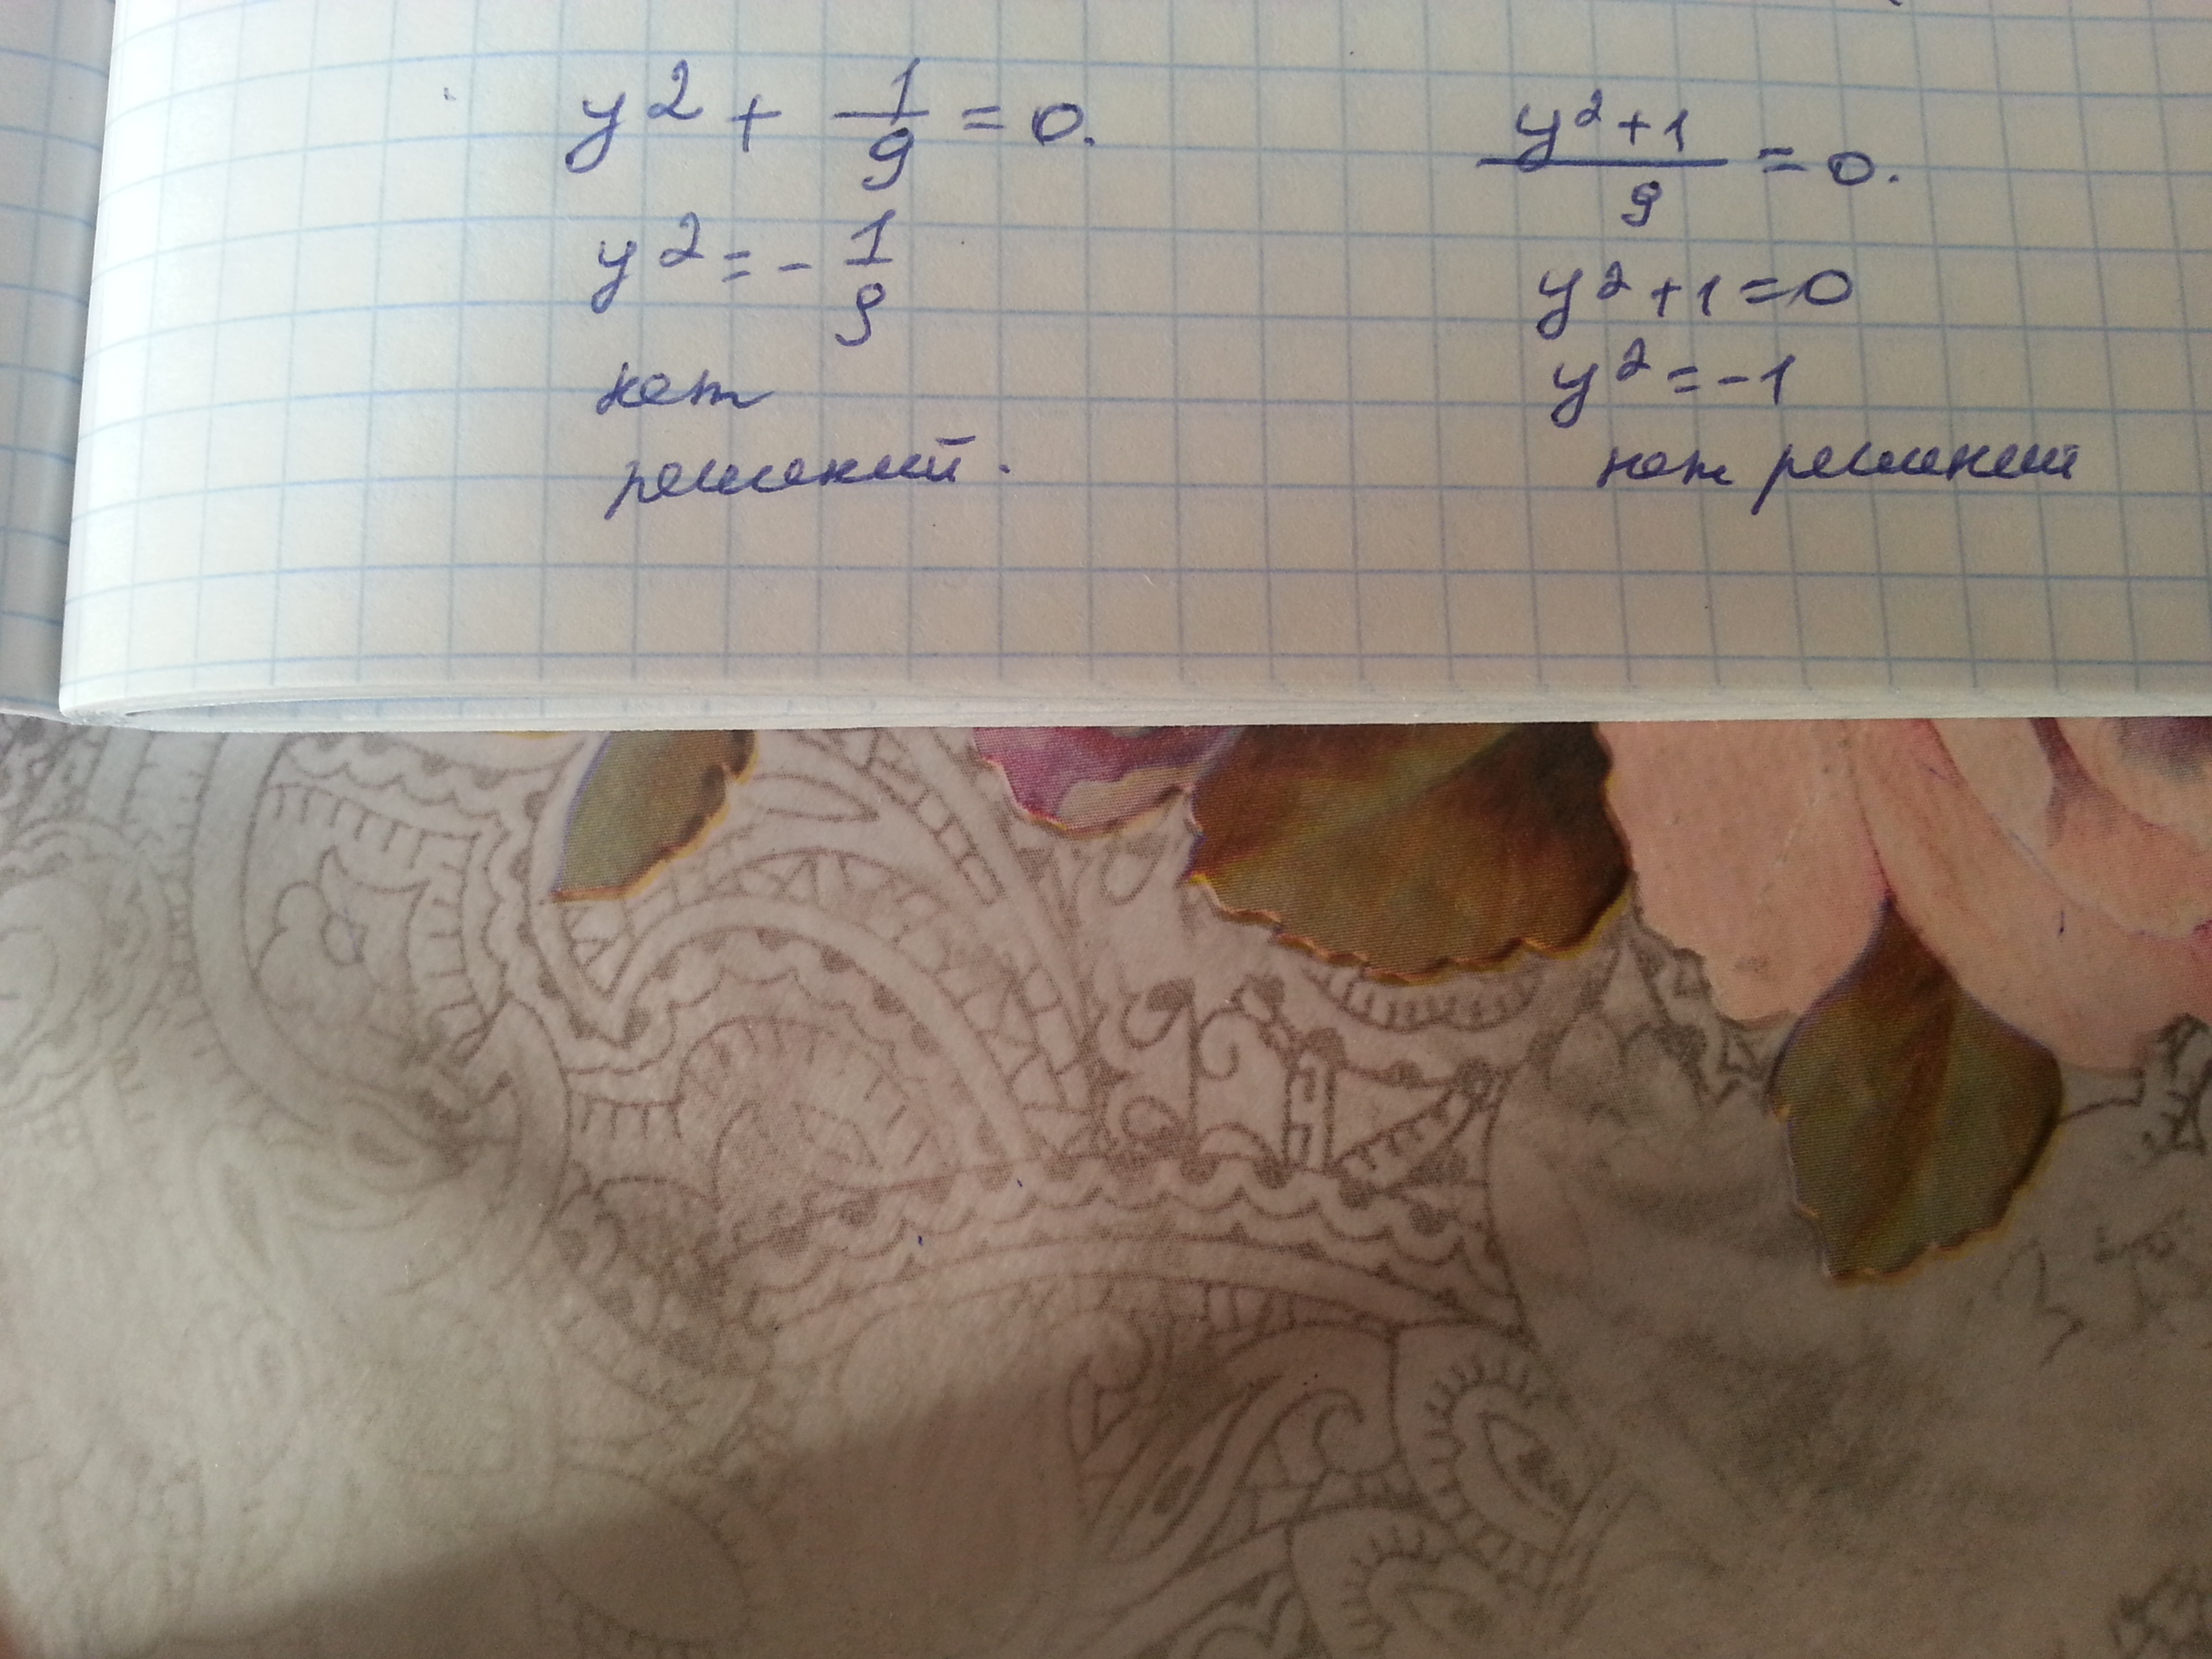 y² + 1/9 = 0.
y² = - 1/9
нет
решений.
(y² + 1)/9 = 0.
y² + 1 = 0
y² = -1
нет решений